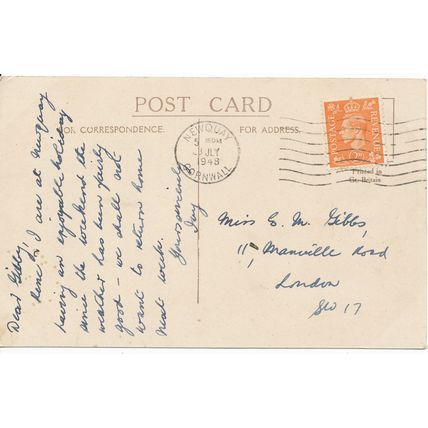 POST CARD
FOR CORRESPONDENCE.
FOR ADDRESS.
NEWQUAY
5
JLY
1948
CORNWALL
POSTAGE
REVENUE
Printed in
Gt. Britain
Dear Gibby,
I are at Newquay
having an enjoyable holiday
since the weekend the
weather has been fairly
good - we shall not
want to return home
next week.
Yours sincerely
Miss E. M. Gibbs,
11, Manville Road
London
SW 17